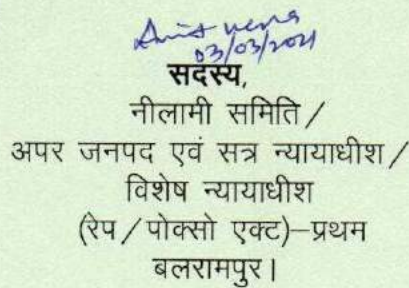 Amit Verma
03/03/2021
सदस्य,
नीलामी समिति /
अपर जनपद एवं सत्र न्यायाधीश /
विशेष न्यायाधीश
(रेप / पोक्सो एक्ट)–प्रथम
बलरामपुर।